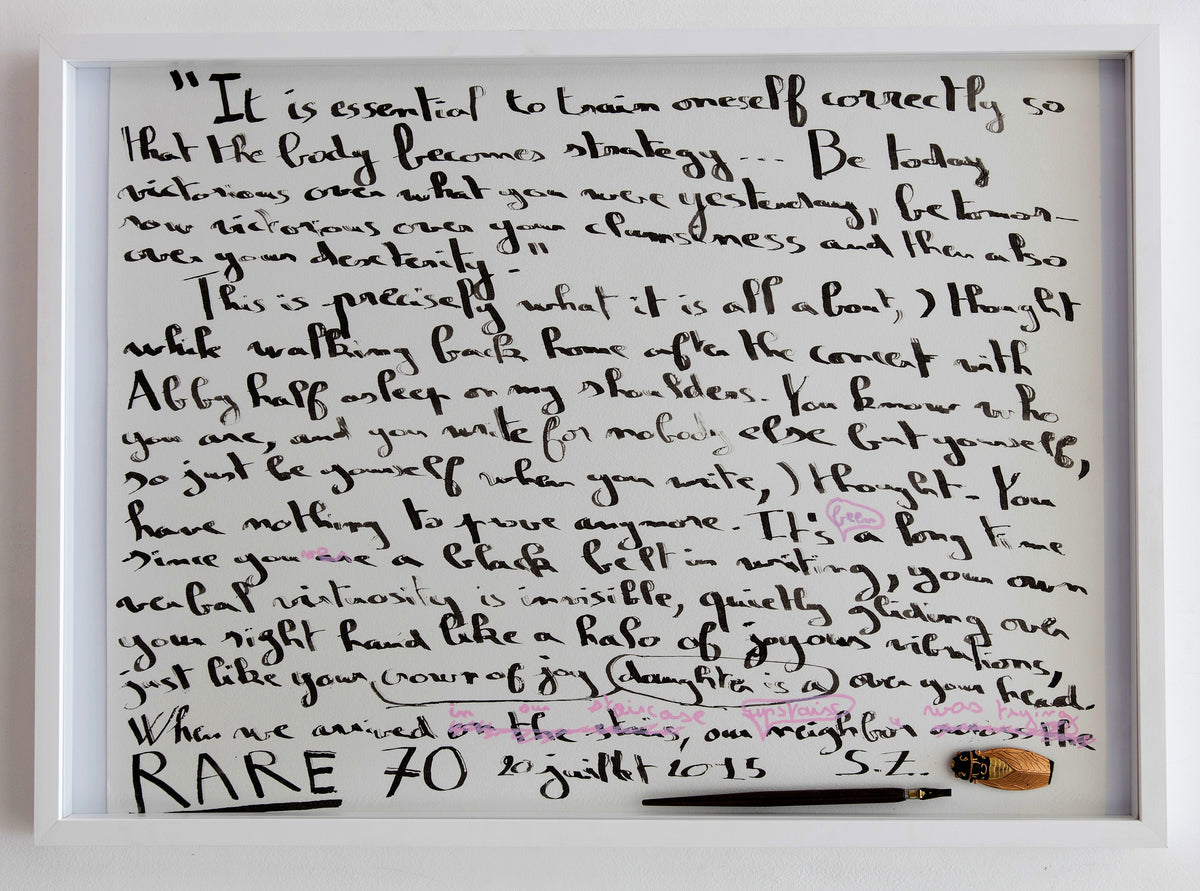 "It is essential to train oneself correctly so
that the body becomes strategy... Be today
victorious over what you were yesterday, be tomor-
row victorious over your clumsiness and then also
over your dexterity."
This is precisely what it is all about, I thought
while walking back home after the concert with
Abby half asleep on my shoulders. You know who
you are, and you write for nobody else but yourself,
so just be yourself when you write, I thought. You
have nothing to prove anymore. It's been a long time
since you are a black belt in writing, your own
verbal virtuosity is invisible, quietly gliding over
your right hand like a halo of joyous vibrations,
just like your crown of joy daughter is a over your head.
in our staircase upstairs was trying
When we arrived on the stairs, our neighbor across the
RARE 70 20 juillet 2015 S.Z.